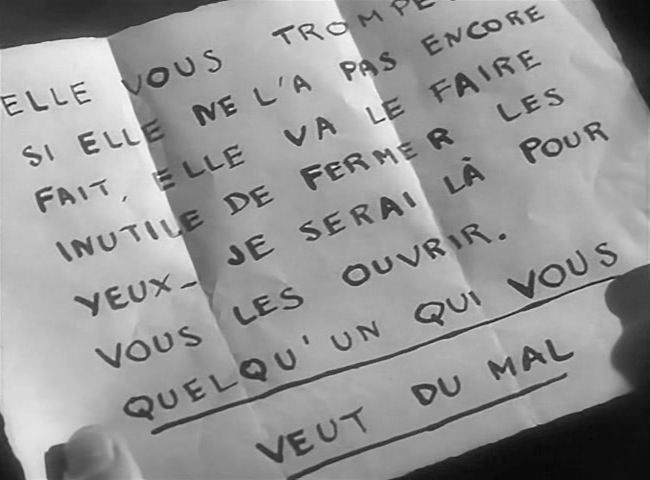 ELLE VOUS TROMPE
SI ELLE NE L'A PAS ENCORE
FAIT, ELLE VA LE FAIRE
INUTILE DE FERMER LES
YEUX- JE SERAI LÀ POUR
VOUS LES OUVRIR.
QUELQU'UN QUI VOUS
VEUT DU MAL